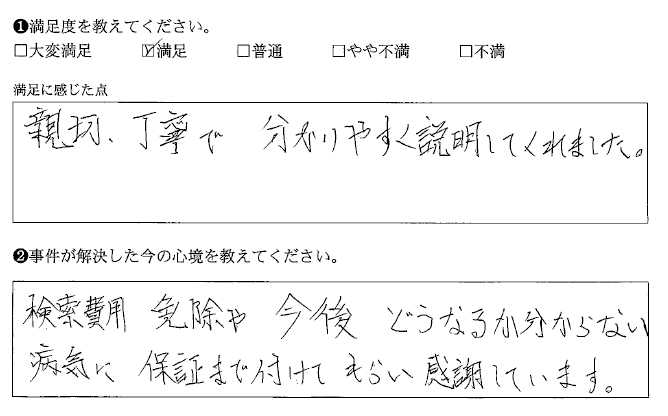 ❶満足度を教えてください。
□大変満足 ☑満足 □普通 □やや不満 □不満
満足に感じた点
親切、丁寧で 分かりやすく説明してくれました。
❷事件が解決した今の心境を教えてください。
検索費用 免除や 今後 どうなるか分からない
病気に 保証まで付けて もらい 感謝しています。